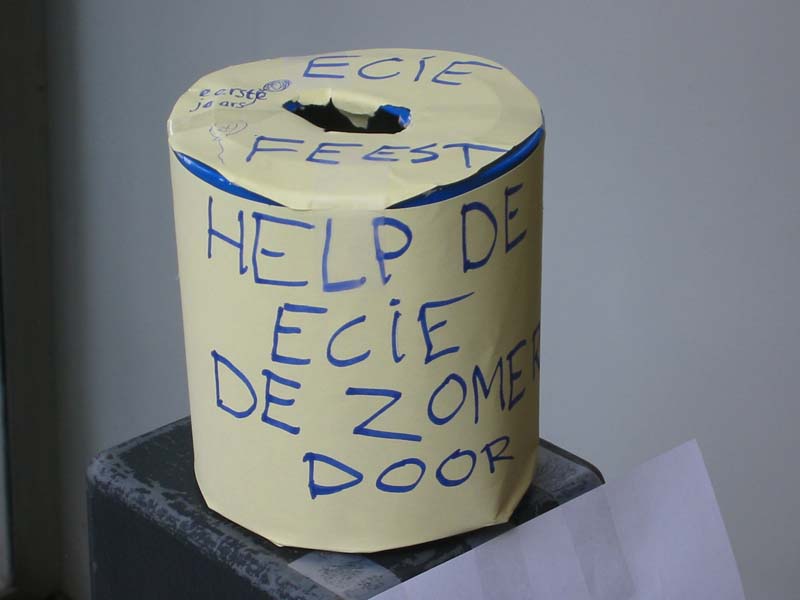 ECIE
eerste
jaars
FEEST
HELP DE
ECIE
DE ZOMER
DOOR